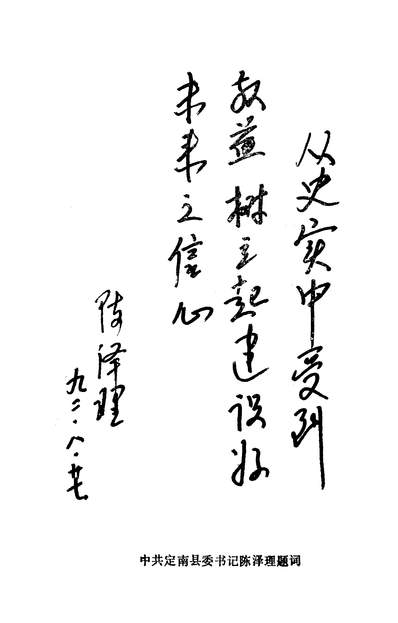 从史实中受到
教益树立起建设好
未来之信心
陈泽理
九二·八·廿七
中共定南县委书记陈泽理题词